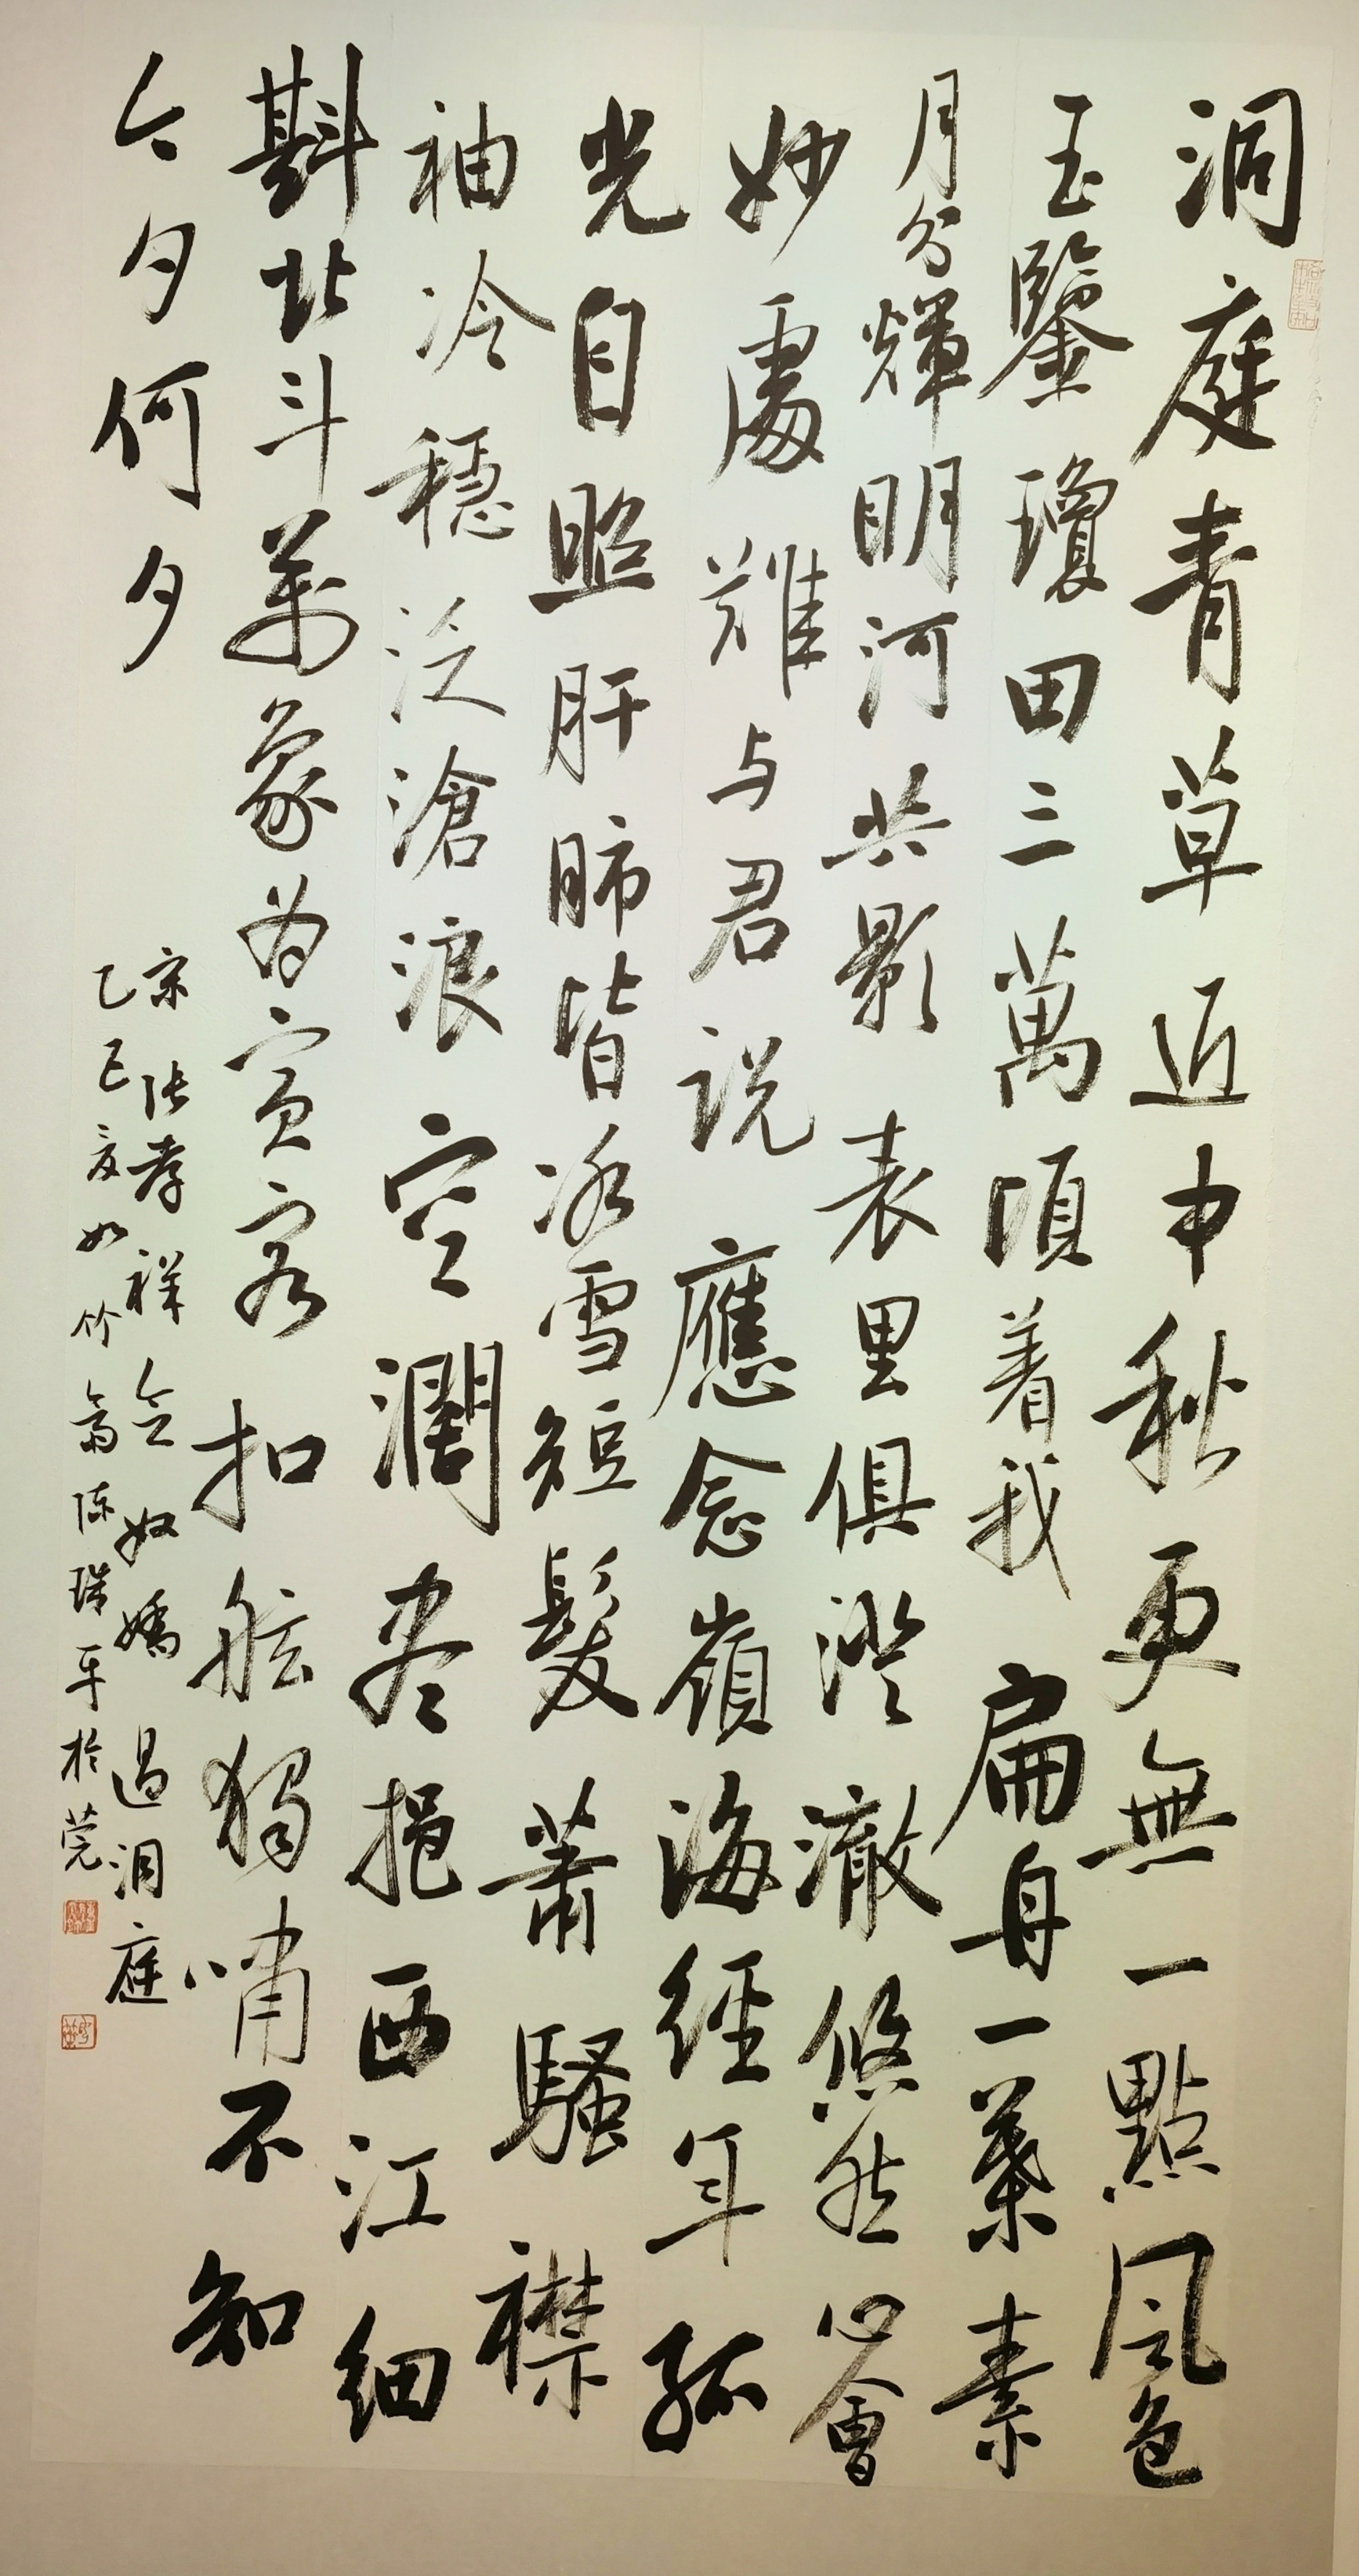 洞庭青草近中秋更無一點风色
玉鑒瓊田三萬頃着我扁舟一葉素
月分輝明河共影表里俱澄澈悠然心會
妙處難与君说應念嶺海經年孤
光自照肝肺皆冰雪短髮蕭騷襟
袖冷穩泛滄浪空濶尽挹西江细
斟北斗萬象为賓客扣舷獨嘯不知
今夕何夕
宋张孝祥念奴嬌過洞庭
乙巳夏如竹斋陈瑞平於莞